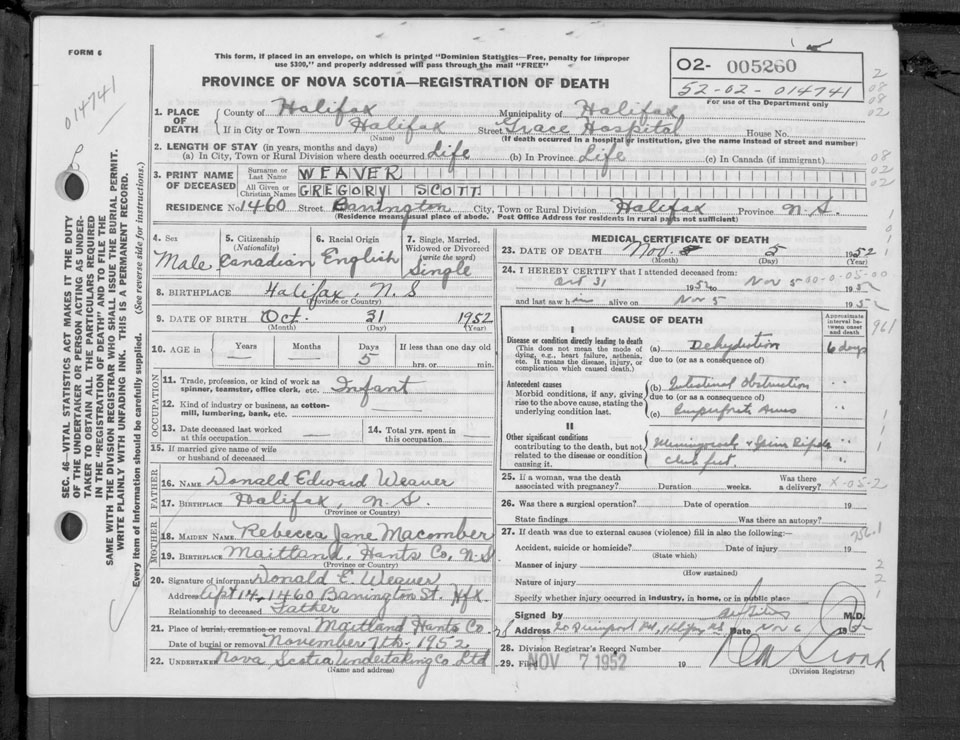 FORM 6
This form, if placed in an envelope, on which is printed "Dominion Statistics—Free, penalty for improper
use $300," and properly addressed will pass through the mail "FREE"
PROVINCE OF NOVA SCOTIA—REGISTRATION OF DEATH
O2- 005260
52-02-014741
For use of the Department only
014741
SEC. 46—VITAL STATISTICS ACT MAKES IT THE DUTY
OF THE UNDERTAKER OR PERSON ACTING AS UNDER-
TAKER TO OBTAIN ALL THE PARTICULARS REQUIRED
IN THE "REGISTRATION OF DEATH" AND TO FILE THE
SAME WITH THE DIVISION REGISTRAR WHO SHALL ISSUE THE BURIAL PERMIT.
WRITE PLAINLY WITH UNFADING INK. THIS IS A PERMANENT RECORD.
Every item of information should be carefully supplied. (See reverse side for instructions.)
1. PLACE OF DEATH
County of Halifax Municipality of Halifax
If in City or Town Halifax Street Grace Hospital House No.
(Name) (If death occurred in a hospital or institution, give the name instead of street and number)
2. LENGTH OF STAY (in years, months and days)
(a) In City, Town or Rural Division where death occurred Life (b) In Province Life (c) In Canada (if immigrant)
3. PRINT NAME OF DECEASED
Surname or Last Name WEAVER
All Given or Christian Names GREGORY SCOTT
RESIDENCE No. 1460 Street Banington City, Town or Rural Division Halifax Province N.S.
(Residence means usual place of abode. Post Office Address for residents in rural parts not sufficient)
4. Sex Male
5. Citizenship (Nationality) Canadian
6. Racial Origin English
7. Single, Married, Widowed or Divorced (write the word) Single
8. BIRTHPLACE Halifax, N.S
(Province or Country)
9. DATE OF BIRTH Oct. 31 1952
(Month) (Day) (Year)
10. AGE in Years Months Days 5 If less than one day old hrs. or min.
OCCUPATION
11. Trade, profession, or kind of work as spinner, teamster, office clerk, etc. Infant
12. Kind of industry or business, as cotton-mill, lumbering, bank, etc.
13. Date deceased last worked at this occupation
14. Total yrs. spent in this occupation
15. If married give name of wife or husband of deceased
FATHER
16. NAME Donald Edward Weaver
17. BIRTHPLACE Halifax, N.S.
(Province or Country)
MOTHER
18. MAIDEN NAME Rebecca Jane Macomber
19. BIRTHPLACE Maitland, Hants Co, N.S
(Province or Country)
20. Signature of informant Donald E. Weaver
Address Apt 14, 1460 Banington St. Hfx.
Relationship to deceased Father
21. Place of burial, cremation or removal Maitland Hants Co.
Date of burial or removal November 7th. 1952
22. UNDERTAKER Nova Scotia Undertaking Co. Ltd
(Name and address)
MEDICAL CERTIFICATE OF DEATH
23. DATE OF DEATH Nov. 5 1952
(Month) (Day) (Year)
24. I HEREBY CERTIFY that I attended deceased from:
Oct 31 1952 to Nov 5 1952
and last saw him alive on Nov 5 1952
CAUSE OF DEATH
Approximate interval between onset and death
I
Disease or condition directly leading to death
(This does not mean the mode of dying, e.g., heart failure, asthenia, etc. It means the disease, injury, or complication which caused death.)
(a) Dehydration 6 days
due to (or as a consequence of)
Antecedent causes
Morbid conditions, if any, giving rise to the above cause, stating the underlying condition last.
(b) Intestinal Obstruction
due to (or as a consequence of)
(c) Imperforate Anus
II
Other significant conditions
contributing to the death, but not related to the disease or condition causing it.
Meningocele & Spina Bifida
club feet.
25. If a woman, was the death associated with pregnancy? Duration weeks. Was there a delivery? X-05-2
26. Was there a surgical operation? Date of operation 19
State findings Was there an autopsy?
27. If death was due to external causes (violence) fill in also the following:—
Accident, suicide or homicide? Date of injury 19
(State which)
Manner of injury
(How sustained)
Nature of injury
Specify whether injury occurred in industry, in home, or in public place
Signed by M.D.
Address Halifax NS Date Nov 6 1952
28. Division Registrar's Record Number
29. Filed NOV 7 1952 19
(Division Registrar)
756.1
961